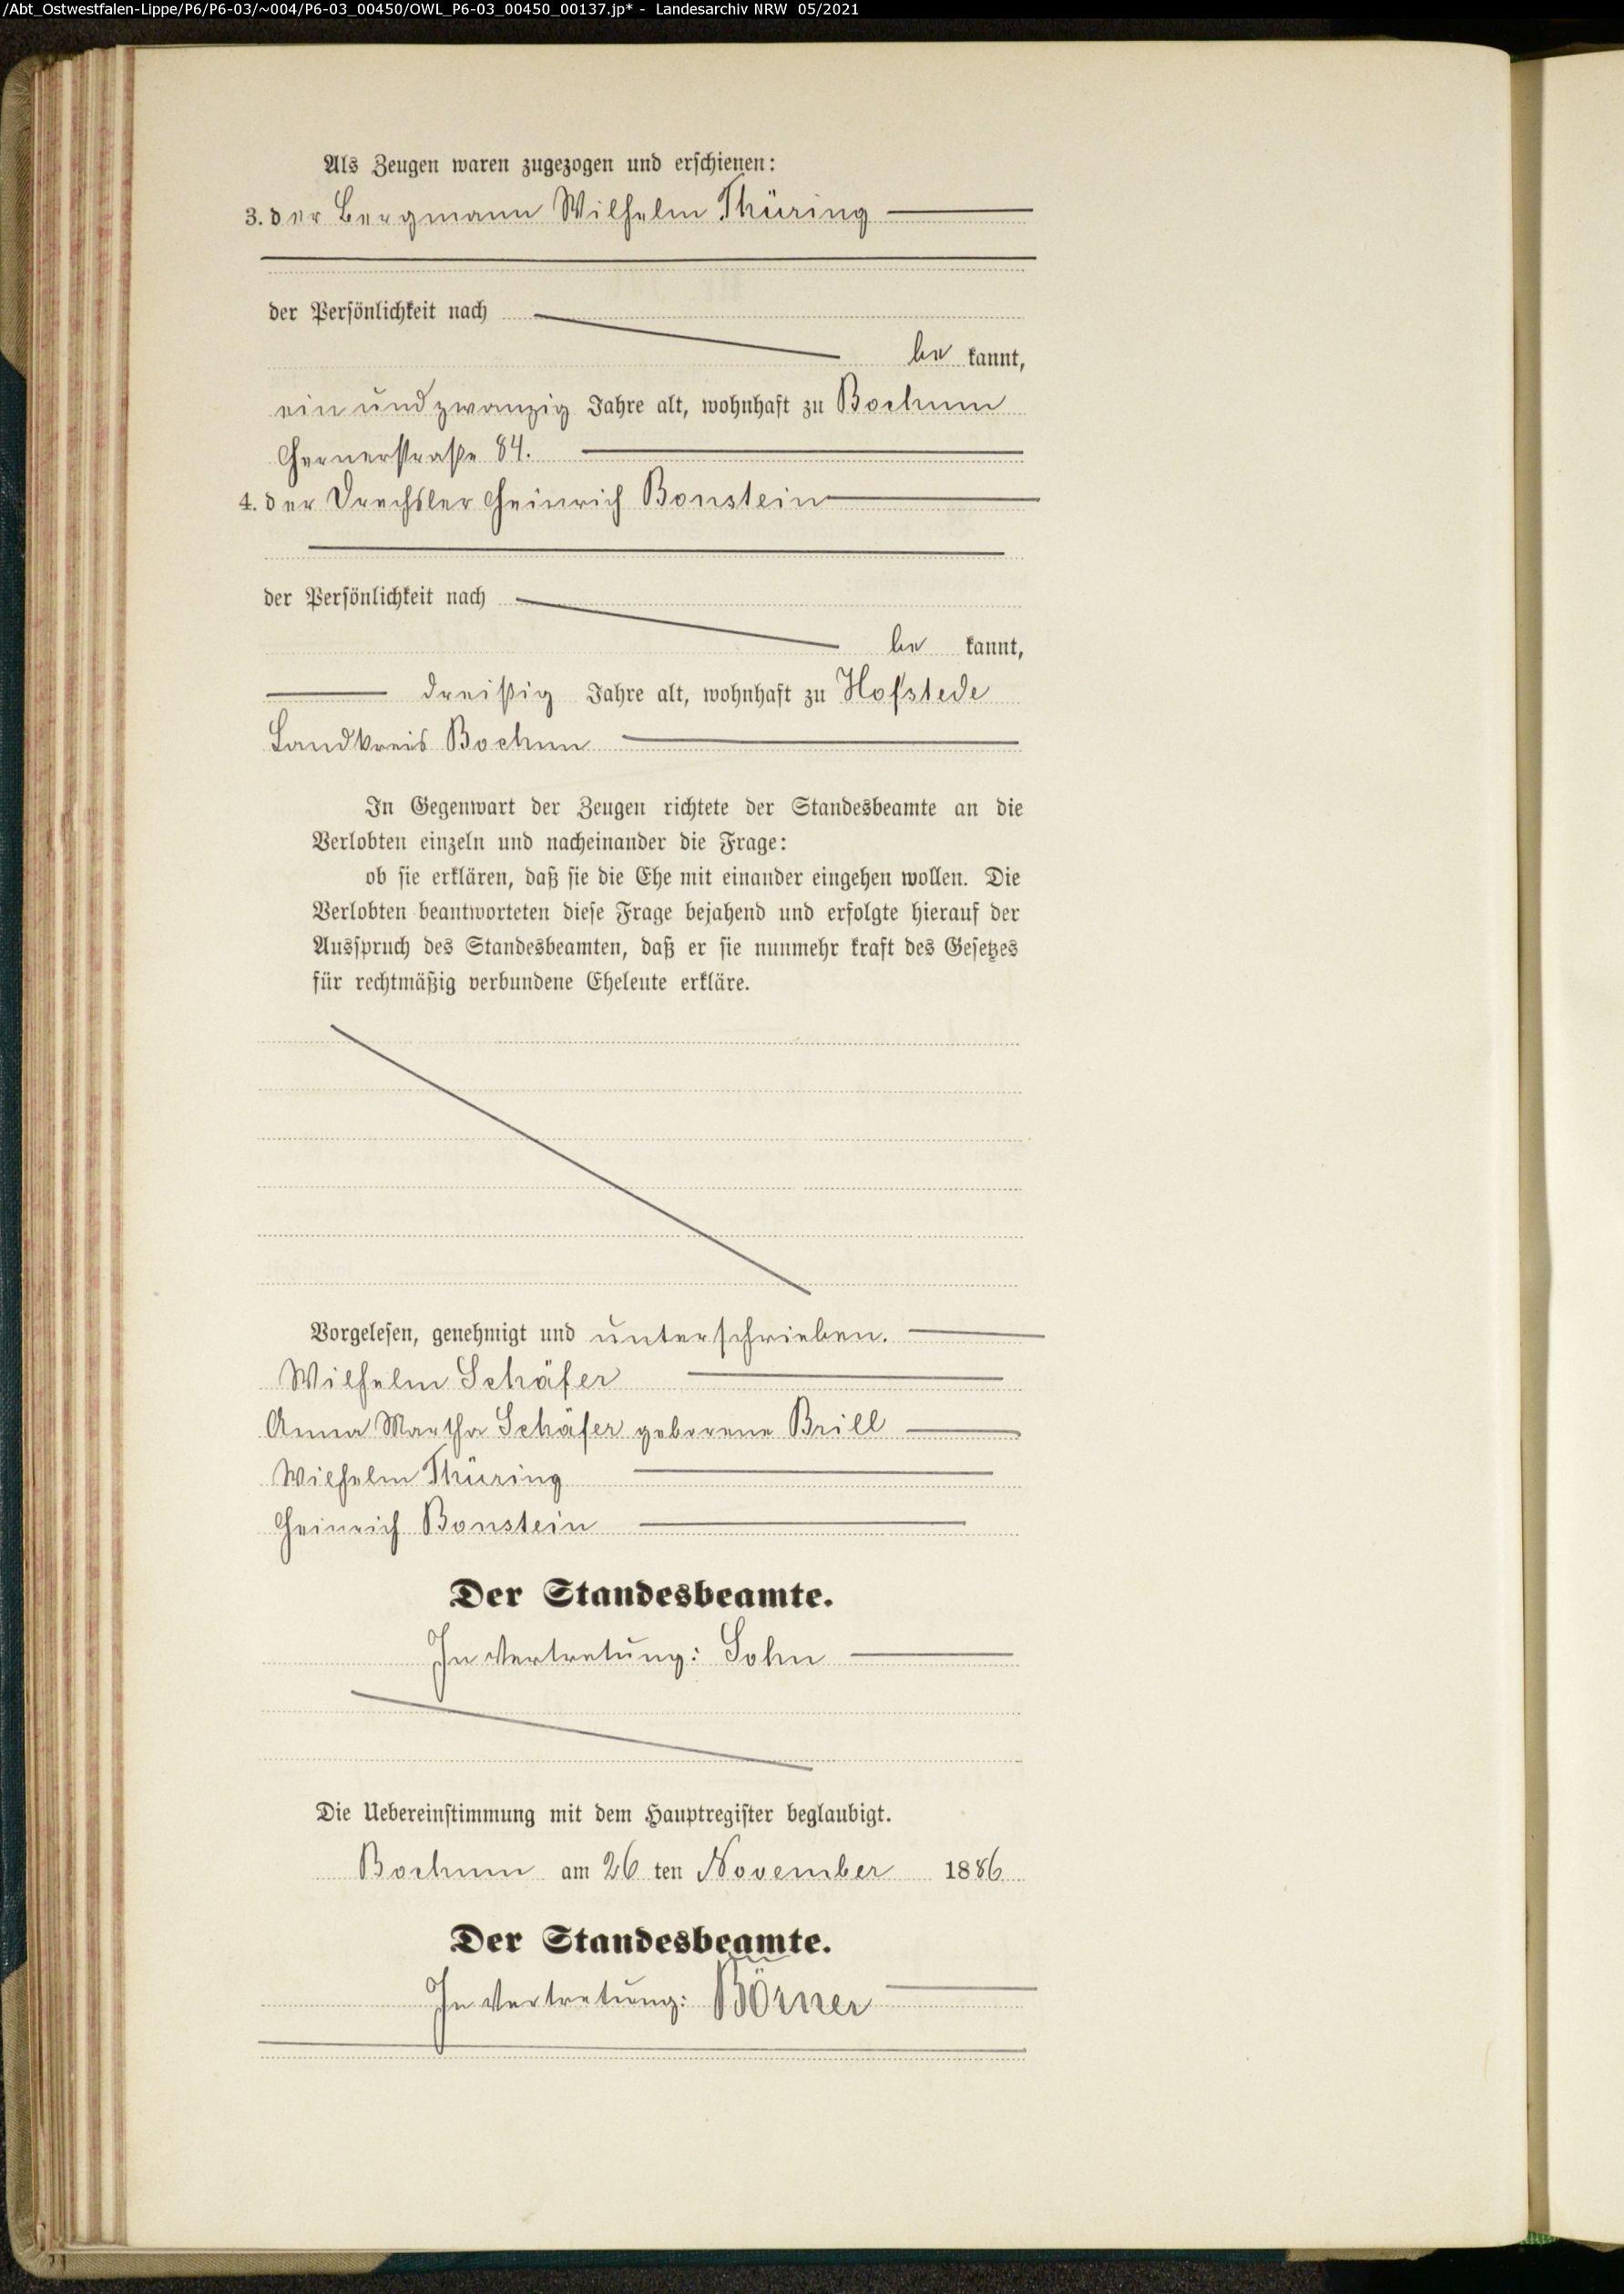 /Abt_Ostwestfalen-Lippe/P6/P6-03/~004/P6-03_00450/OWL_P6-03_00450_00137.jp* - Landesarchiv NRW 05/2021
Als Zeugen waren zugezogen und erschienen:
3. der Bergmann Wilhelm Thüring
der Persönlichkeit nach
be kannt,
ein und zwanzig Jahre alt, wohnhaft zu Bochum
Hernerstraße 84.
4. der Drechsler Heinrich Bonstein
der Persönlichkeit nach
be kannt,
dreißig Jahre alt, wohnhaft zu Hofstede
Landkreis Bochum
In Gegenwart der Zeugen richtete der Standesbeamte an die
Verlobten einzeln und nacheinander die Frage:
ob sie erklären, daß sie die Ehe mit einander eingehen wollen. Die
Verlobten beantworteten diese Frage bejahend und erfolgte hierauf der
Ausspruch des Standesbeamten, daß er sie nunmehr kraft des Gesetzes
für rechtmäßig verbundene Eheleute erkläre.
Vorgelesen, genehmigt und unterschrieben.
Wilhelm Schäfer
Anna Martha Schäfer geborene Brill
Wilhelm Thüring
Heinrich Bonstein
Der Standesbeamte.
In Vertretung: Sohn
Die Uebereinstimmung mit dem Hauptregister beglaubigt.
Bochum am 26 ten November 1886
Der Standesbeamte.
In Vertretung: Börner